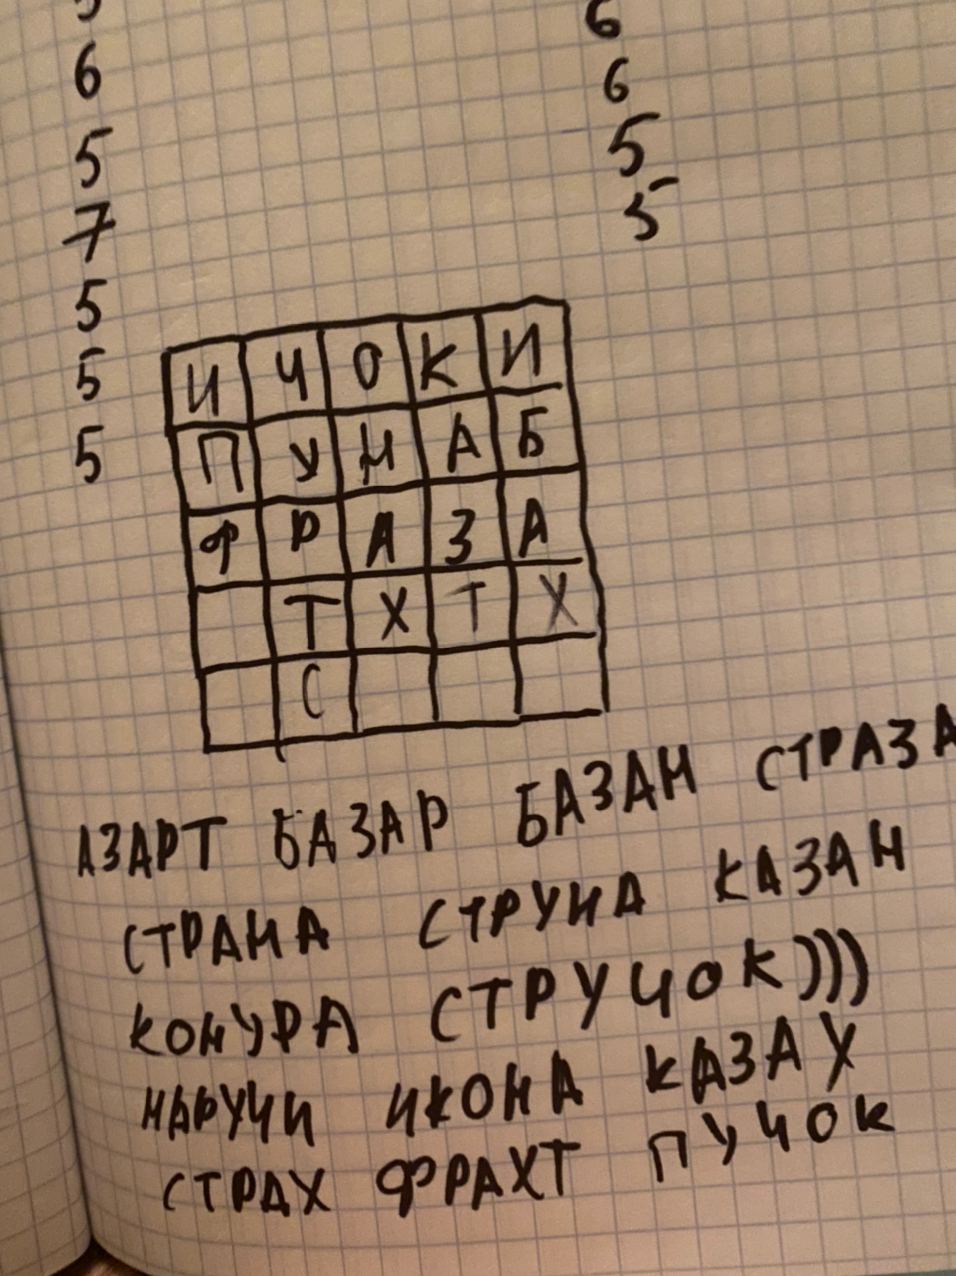 6
6
6
5
5
7
5
5
5
5
И Ч О К И
П У Н А Б
Ф Р А З А
Т Х Т Х
С
АЗАРТ БАЗАР БАЗАН СТРАЗА
СТРАНА СТРУНА КАЗАН
КОНУРА СТРУЧОК)))
НАРУЧИ ИКОНА КАЗАХ
СТРАХ ФРАХТ ПУЧОК